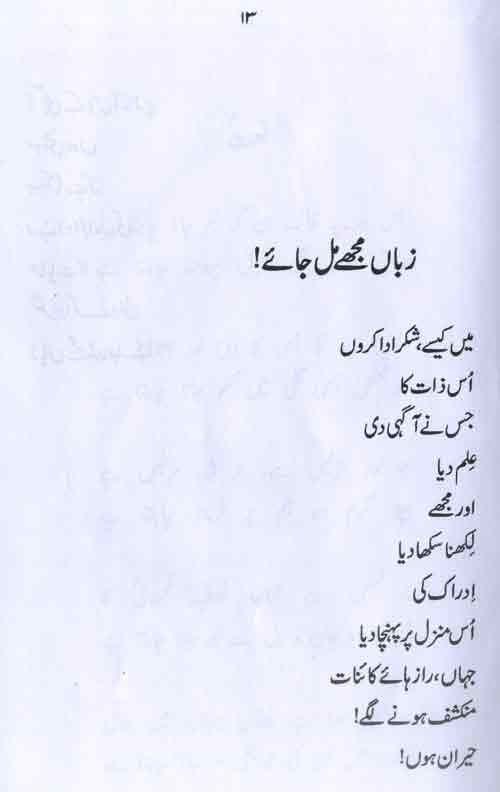 ۱۳
زباں مجھے مل جائے!
میں کیسے، شکر ادا کروں
اُس ذات کا
جس نے آگہی دی
عِلم دیا
اور مجھے
لِکھنا سکھا دیا
اِدراک کی
اُس منزل پر پہنچا دیا
جہاں، راز ہائے کائنات
منکشف ہونے لگے!
حیران ہوں!